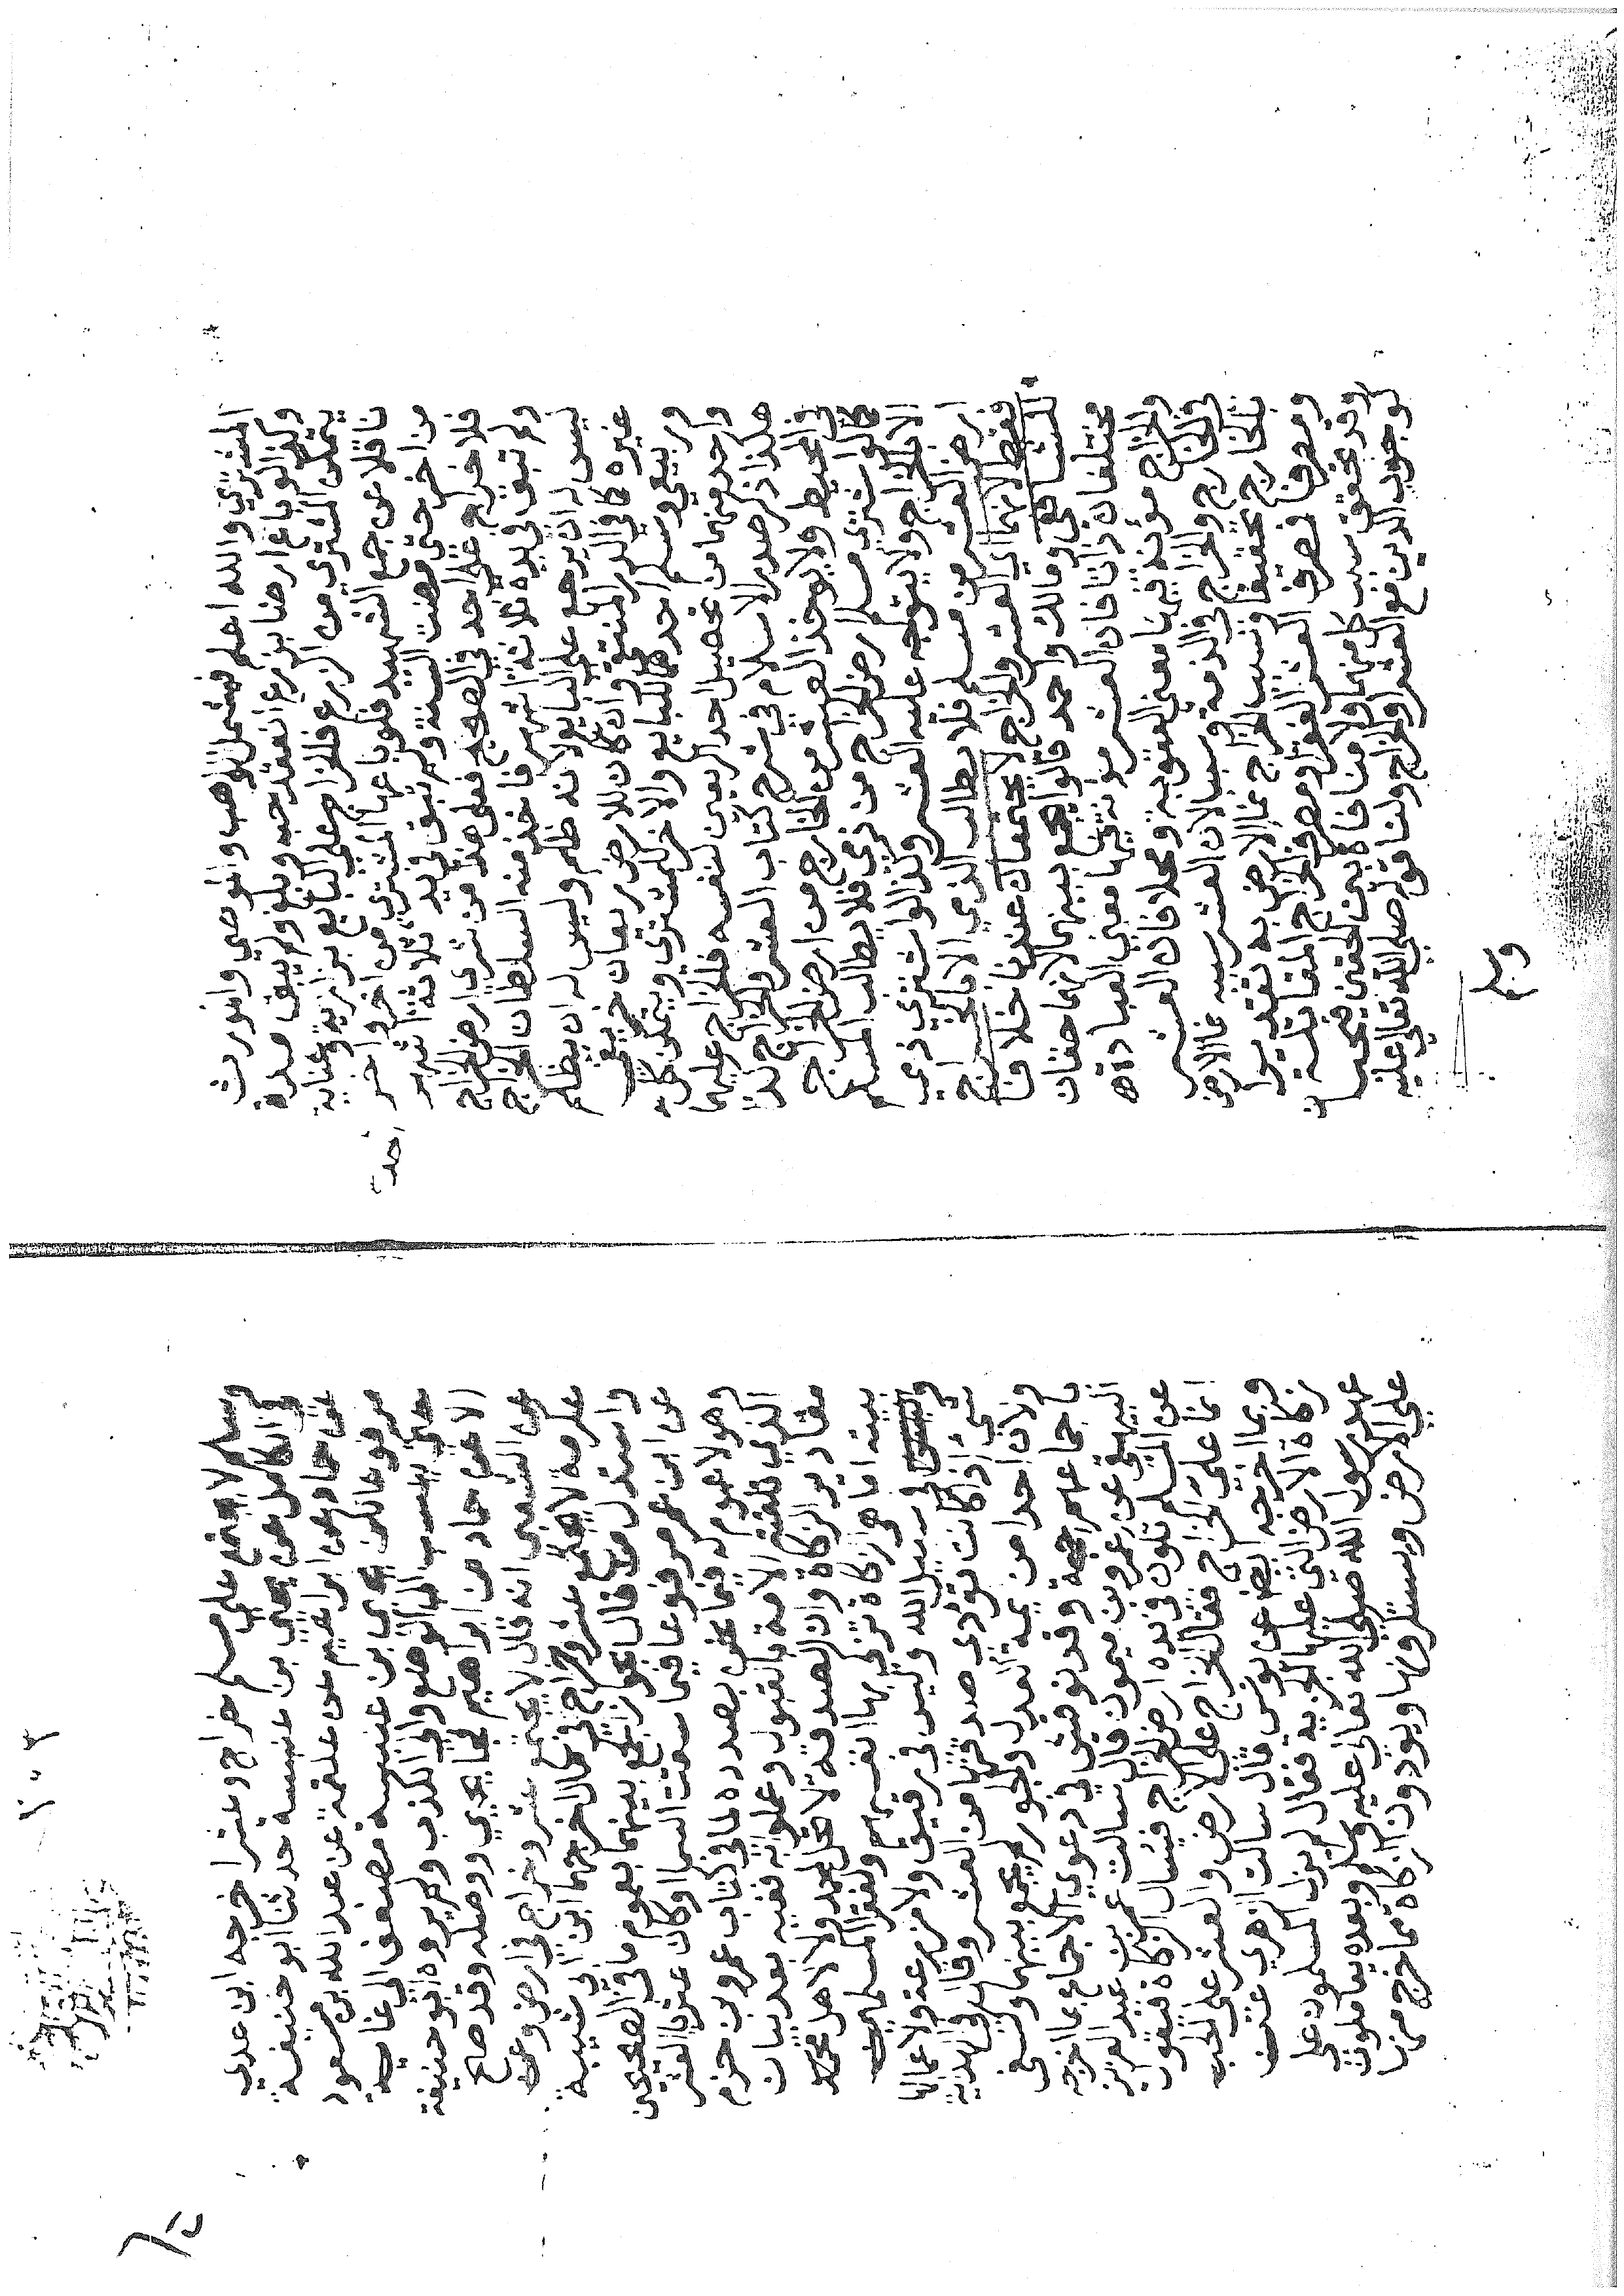 المشتري والله اعلم فيشمل الواهب والموصي والمورث
وكذا لو باع ارضا بزرع انعقد حبه وبلغ ولم يبق مدة
يتمكن المشتري من الزرع فالخراج على البايع بزازية وعناية
ناقلا عن جمع الشهيد فلو باعها المشتري من اخر واخر
من اخر حتى مضت السنة ولم تبق في يد احد ثلاثة اشهر
فلا خراج على احد في الصحيح فعلى هذا من شري ارض الخراج
ولم تبق في يده ثلاثة اشهر فاخذ منه السلطان الخراج
ليس له ان يرجع على البايع لانه ظلم وليس له ان يظلم
غيره كما في الدر المنتقى وان كان للارض ريعان خريفي
وربيعي وسلم احدهما للبايع والاخر للمشتري ويتمكن كل
واحد منهما من تحصيل احد الريعين لنفسه فالخراج عليهما
هكذا ذكر صدر الاسلام في شرح كتاب العشر والخراج كذا
في المحيط ولا يوخذ العشر من الخارج من ارض الخراج
كما لو اشترى مسلم ارض الخراج من ذمي فلا يطالب المسلم
الا بالخراج ولا يتوجه عليه العشر وكذا لو اشترى ذمي
ارض العشر من مسلم فلا يطالب الذمي الا بالخراج
فقط لانهما اي العشر والخراج لا يجتمعان عندنا خلافا
للشافعي ومالك واحمد قالوا يجمع بينهما لانهما حقان
مختلفان ذاتا فان العشر مونة فيها معنى العبادة
والخراج مونة فيها معنى العقوبة ومحلا فان العشر
في الخارج والخراج في الذمة وسببا لان العشر سببه نما الارض
بالخارج تحقيقا وسبب الخراج نما الارض به تقديرا
ومصرفا فمصرف العشر الفقرا ومصرف الخراج المقاتلة
وقد تحقق سبب كل منهما ولا منافاة بين الحقين فيجبان
كوجوب الدين مع العشر والخراج ولنا قوله صلى الله تعالى عليه
وسلم
وسلم لا يجتمع على مسلم خراج وعشر اخرجه ابن عدي
في الكامل عن يحيى بن عنبسة حدثنا ابو حنيفة
عن حماد عن ابراهيم عن علقمة عن عبد الله بن مسعود
مرفوعا لكن يحيى بن عنبسة مضعف الى غاية
حتى ينسب الى الوضع والى الكذب ولم يروه ابو حنيفة
الا عن حماد عن ابراهيم فجا يحيى ووصله وقد صح
عن الشعبي انه قال لا يجتمع عشر وخراج في ارض وعن
عكرمة لا يجتمع عشر وخراج في مال اخرجهما ابن ابي شيبة
واستدل من قال بجواز الجمع بينهما بعموم ما في الصحيحين
عن ابن عمر مرفوعا فيما سقت السما او كان عثريا العشر
وهو لا عموم له فيما نحن بصدده لما في كتاب عمرو بن حزم
الذي تلقته الامة بالقبول وعملوا به ففيه بعد بيان
مقادير الزكاة وان الصدقة لا تحل لمحمد ولا لاهل محمد
بيته انما هو زكاة تزكى بها انفسهم ولفقرا المسلمين
في سبيل الله وليس في رقيق ولا مزرعة ولا عمالها
شي اذا كانت تؤدى صدقتها من العشر وقال في الهداية
ولان احدا من ايمة العدل والجور لم يجمع بينهما وكفى
باجماعهم حجة وقد نوقش في دعوى الاجماع بما اخرجه
البيهقي عن عمرو بن ميمون قال سالت عمر بن عبد العزيز
عن المسلم تكون في يده ارض الخراج فيسال الزكاة فيقول
انما علي الخراج فقال الخراج على الارض والعشر على الحب
وبما اخرجه ايضا عن يونس قال سالت الزهري عن
زكاة الارض التي عليها الجزية فقال لم يزل المسلمون على
عهد رسول الله صلى الله تعالى عليه وسلم وبعده يعاملون
على الارض ويستكرونها ويؤدون الزكاة مما خرج منها